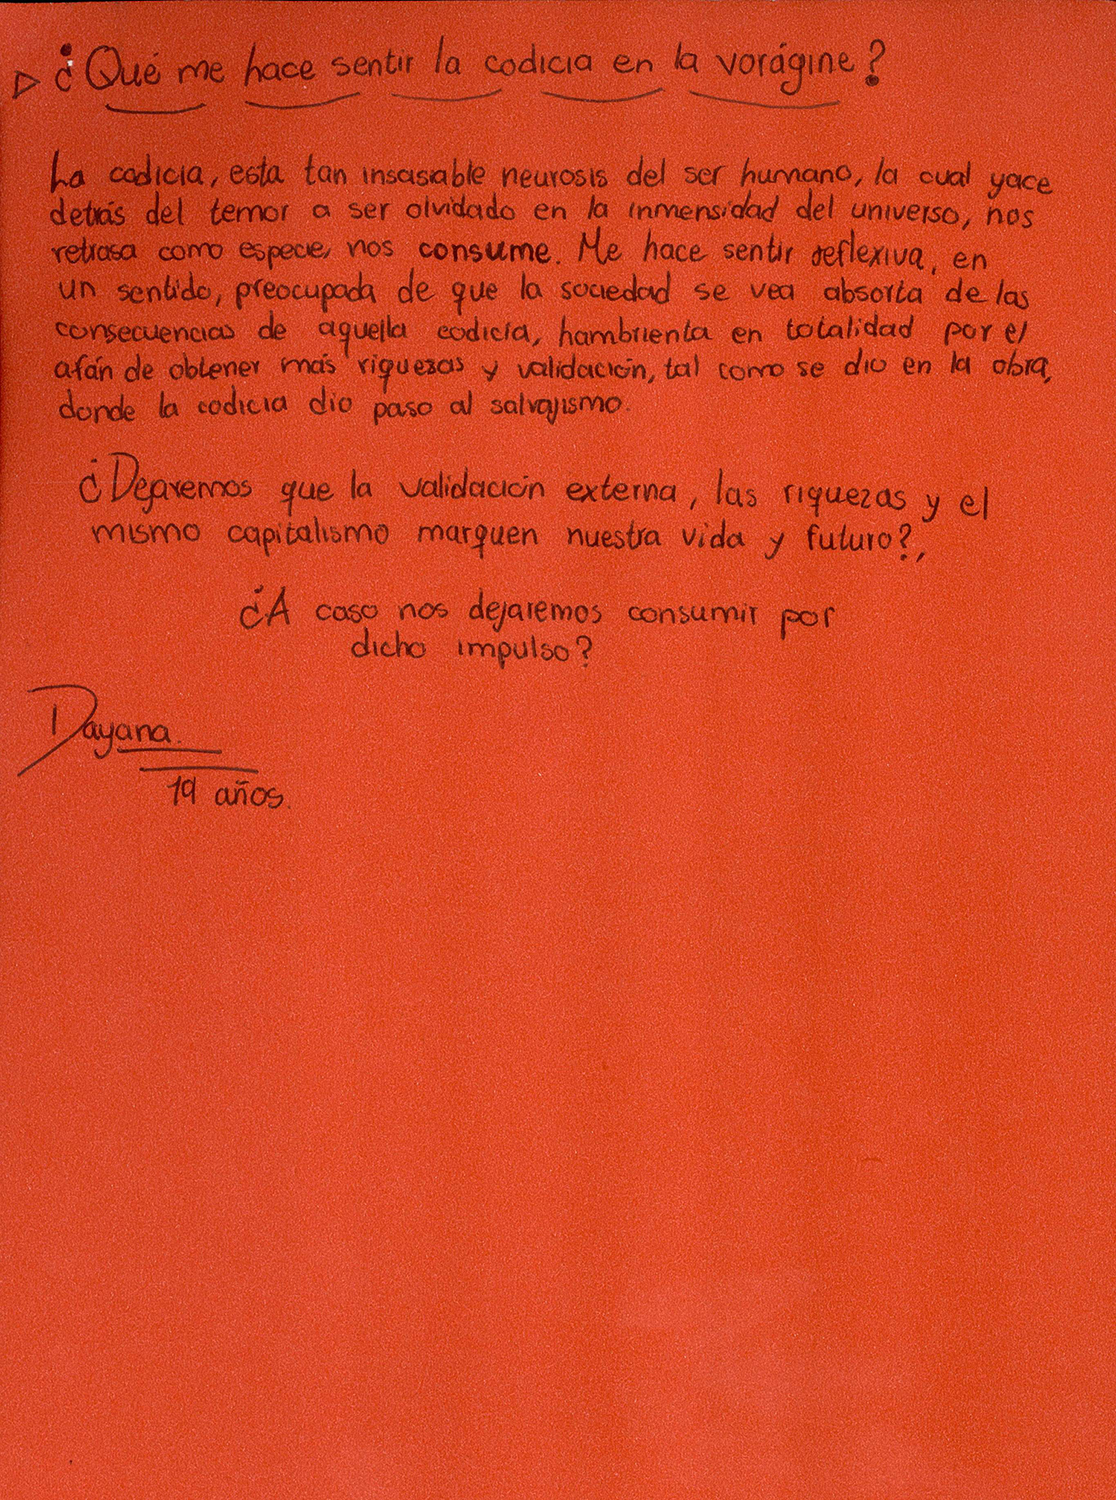 ▷ ¿Qué me hace sentir la codicia en la vorágine?
La codicia, esta tan insasiable neurosis del ser humano, la cual yace
detrás del temor a ser olvidado en la inmensidad del universo, nos
retrasa como especie, nos consume. Me hace sentir reflexiva, en
un sentido, preocupada de que la sociedad se vea absorta de las
consecuencias de aquella codicia, hambrienta en totalidad por el
afán de obtener más riquezas y validación, tal como se dio en la obra,
donde la codicia dio paso al salvajismo.
¿Dejaremos que la validación externa, las riquezas y el
mismo capitalismo marquen nuestra vida y futuro?,
¿A caso nos dejaremos consumir por
dicho impulso?
Dayana.
19 años.